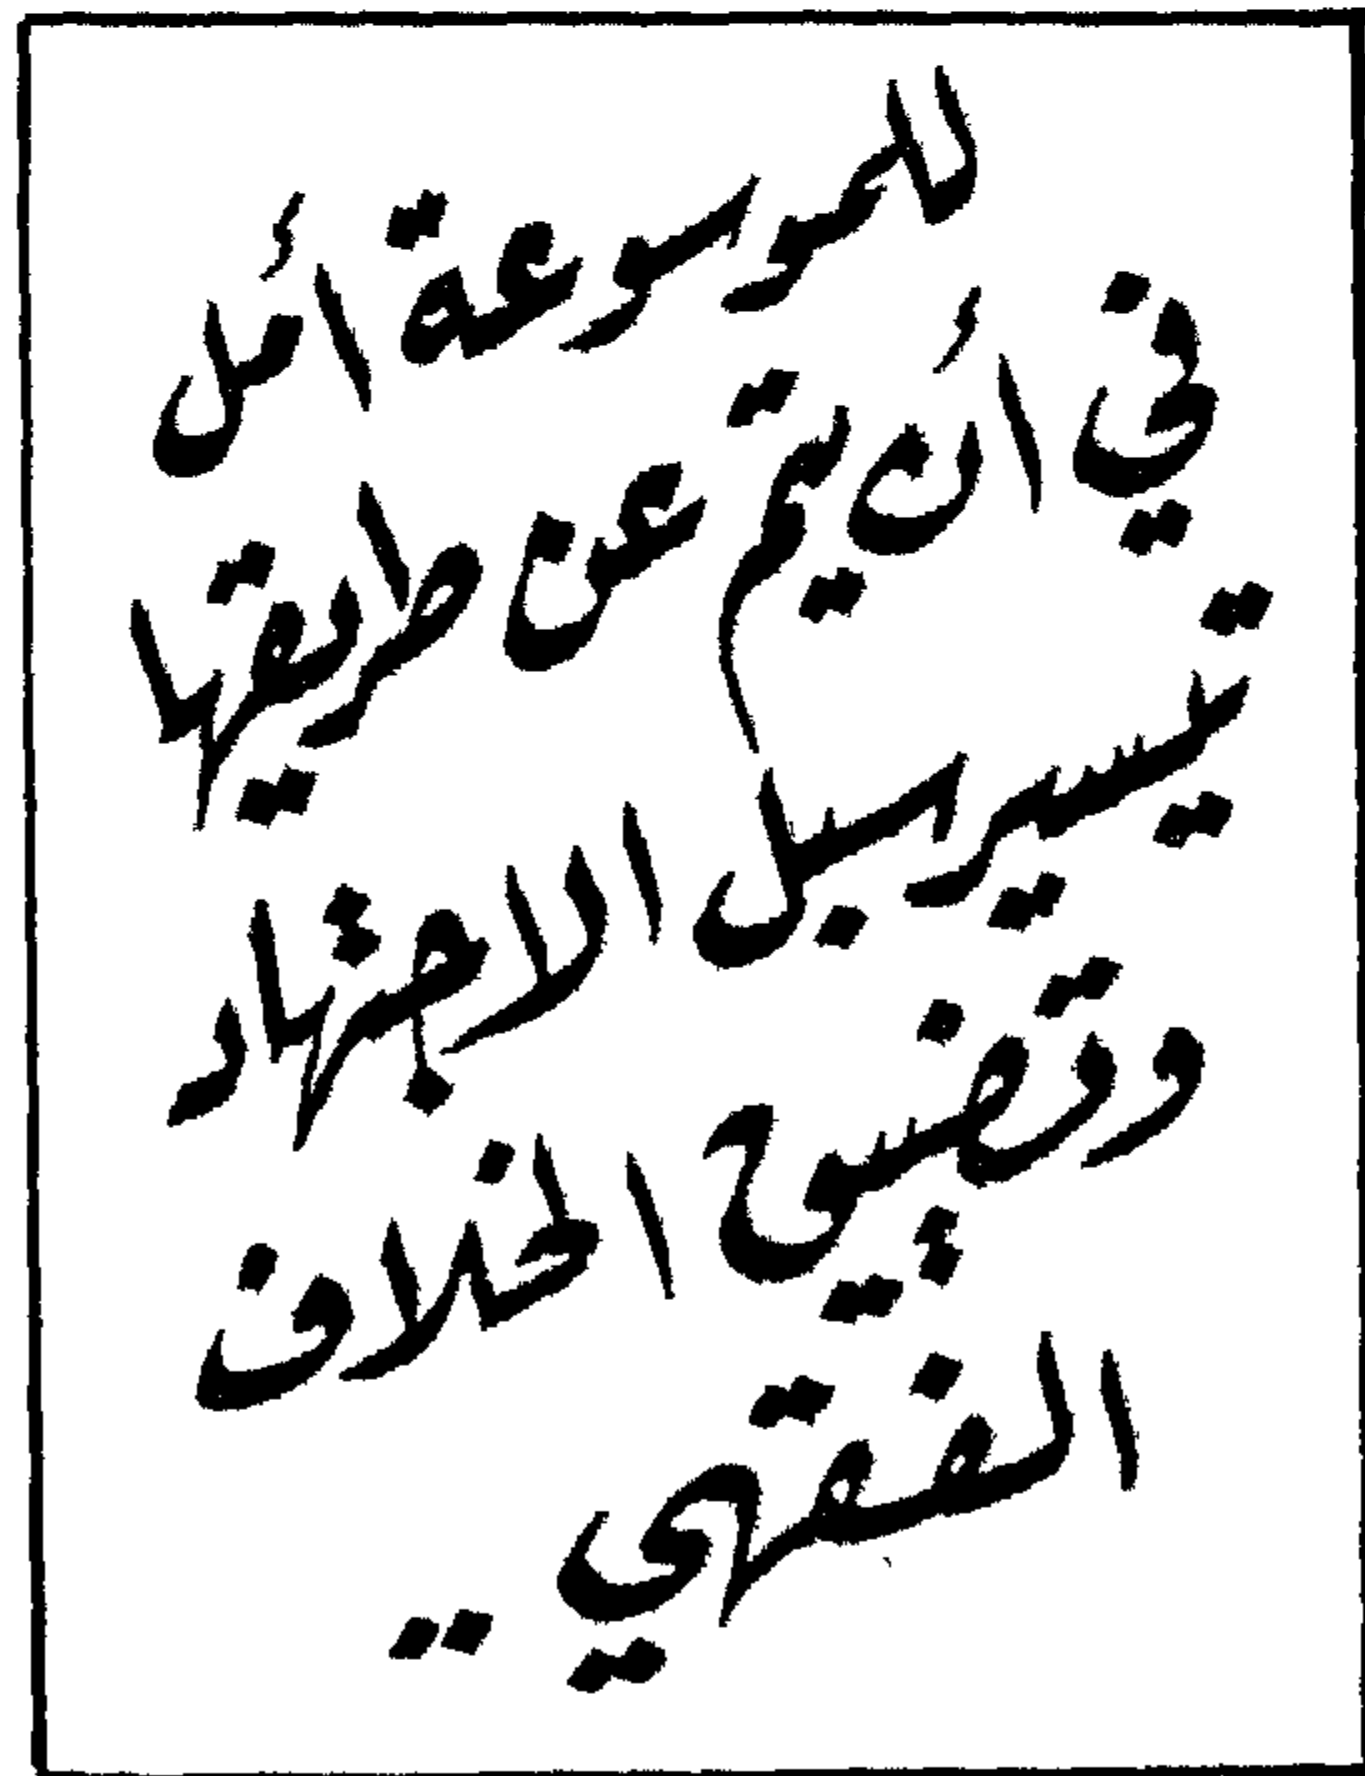 للموسوعة أمل
في أن يتم عن طريقها
تيسير سبل الاجتهاد
وتضييق الخلاف
الفقهي ..